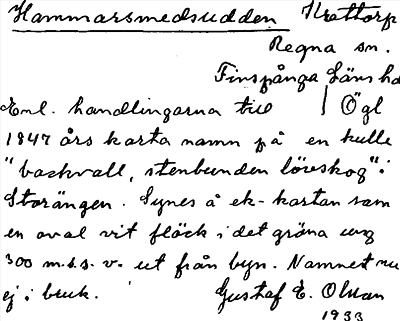 Hammarsmedsudden Krattorp
Regna sn.
Finspånga Länshd
Enl. handlingarna till Ögl
1847 års karta namn på en kulle
"backvall, stenbunden löveskog" i
Storängen. Synes å ek-kartan som
en oval vit fläck i det gröna ung
300 m.s.s.v. ut från byn. Namnet nu
ej i bruk. Gustaf E. Olsson
1933